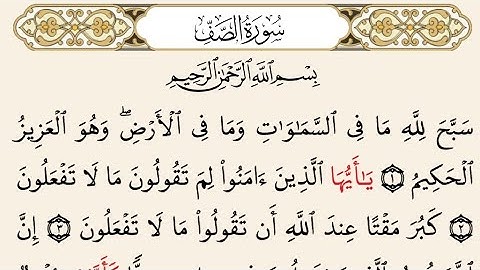 سُورَةُ الصَّفِّ
بِسْمِ اللَّهِ الرَّحْمَٰنِ الرَّحِيمِ
سَبَّحَ لِلَّهِ مَا فِي السَّمَاوَاتِ وَمَا فِي الْأَرْضِ ۖ وَهُوَ الْعَزِيزُ
الْحَكِيمُ ۝١ يَا أَيُّهَا الَّذِينَ ءَامَنُوا لِمَ تَقُولُونَ مَا لَا تَفْعَلُونَ
۝٢ كَبُرَ مَقْتًا عِندَ اللَّهِ أَن تَقُولُوا مَا لَا تَفْعَلُونَ ۝٣ إِنَّ